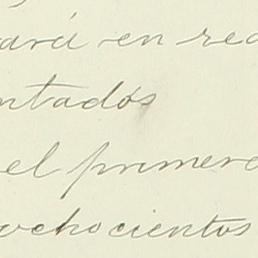 ará en rea
ntados
el primero
ochocientos